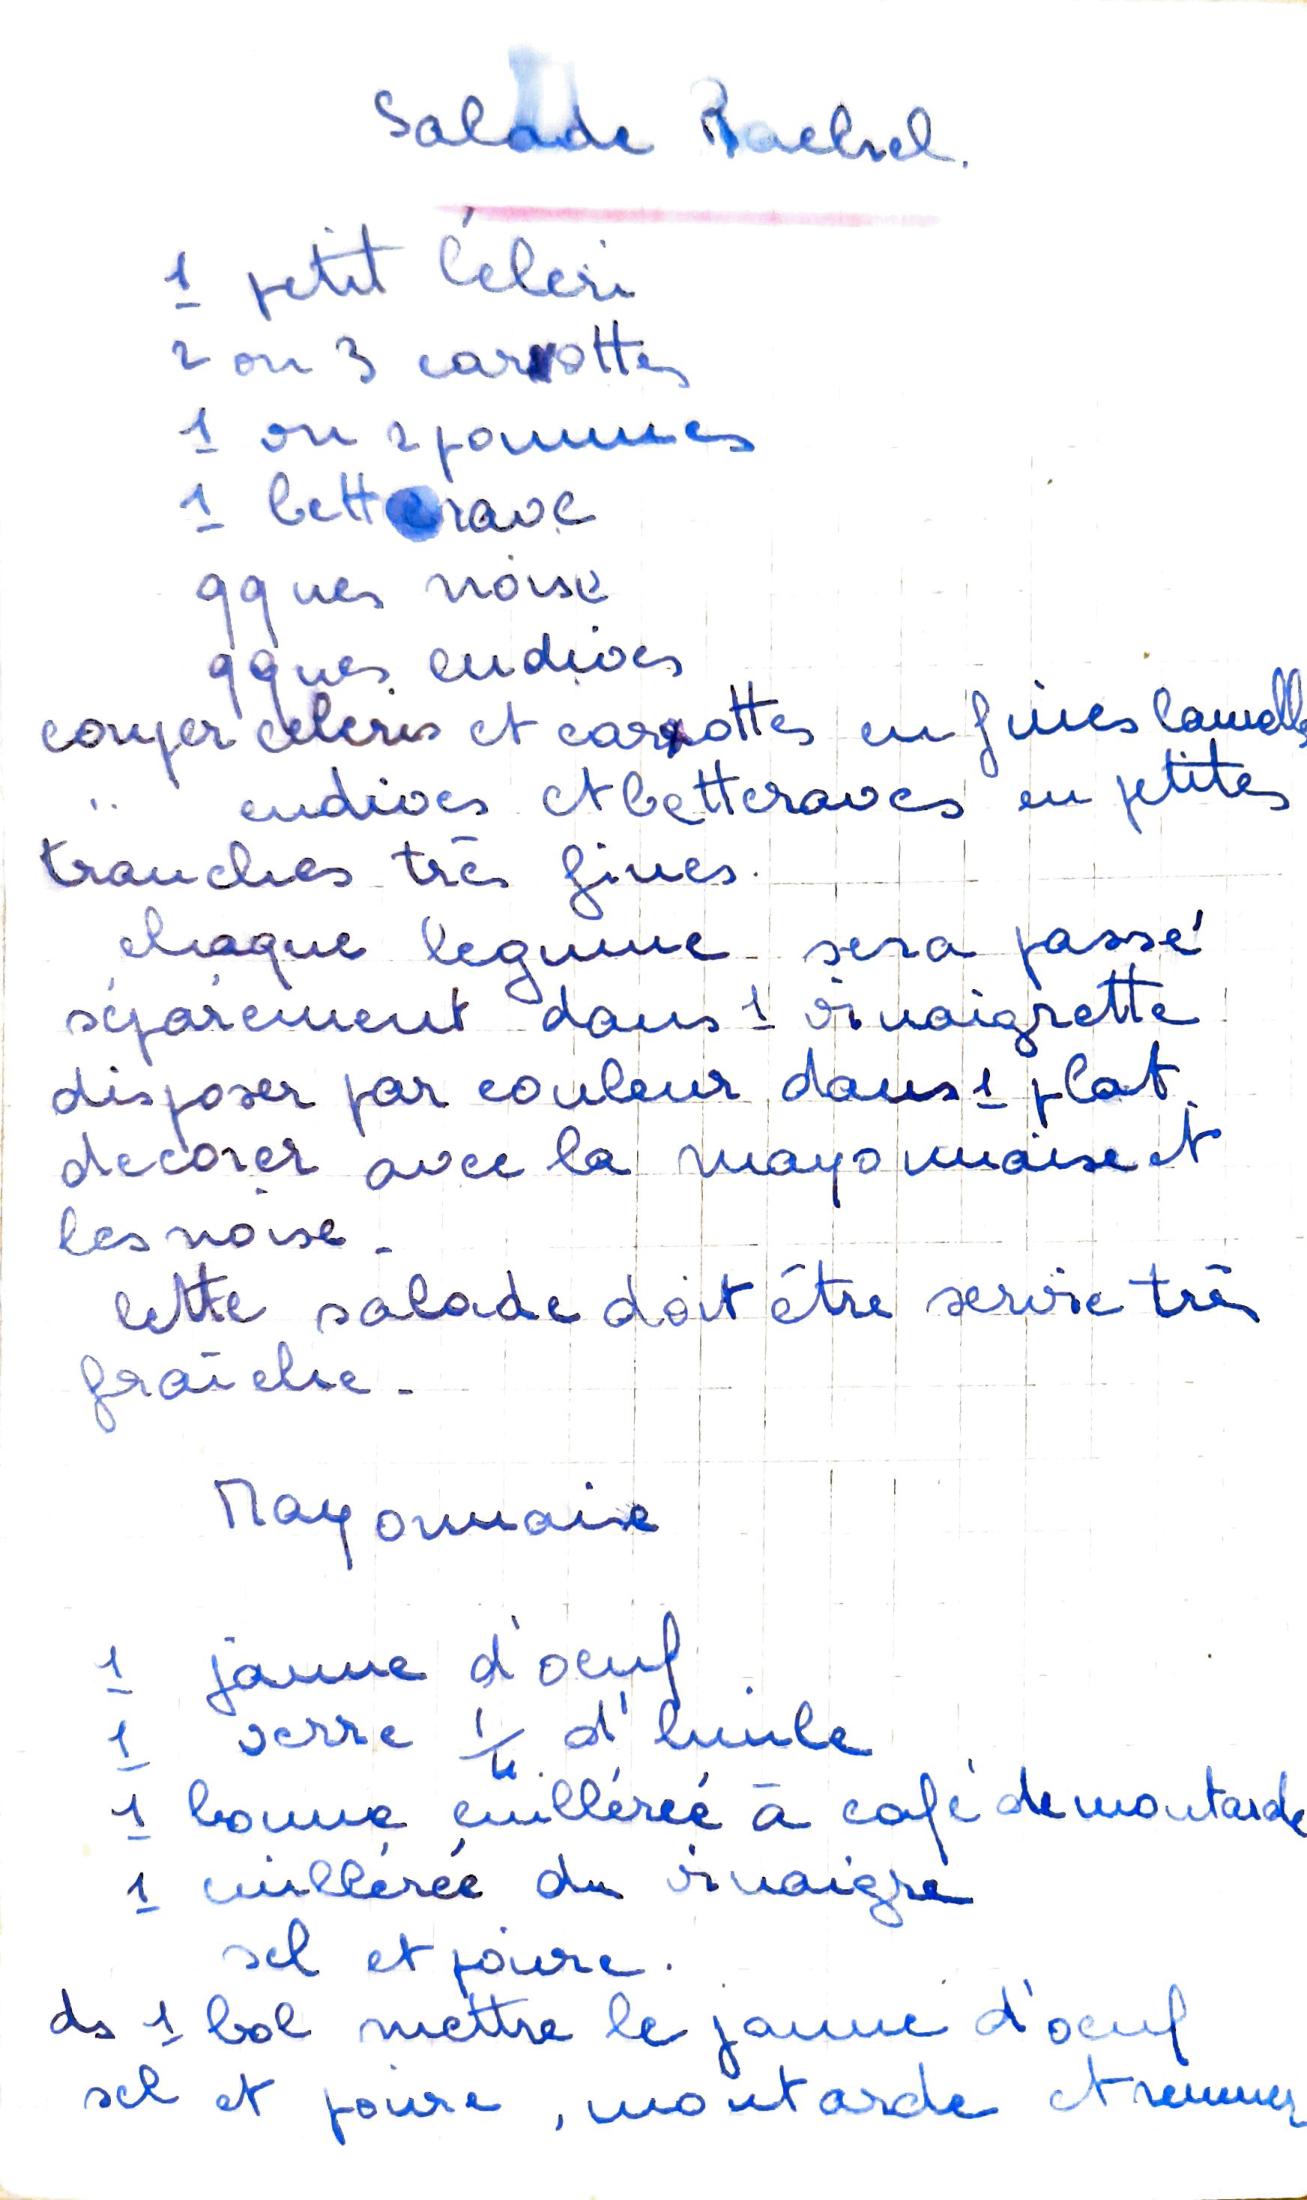 Salade Rachel.
1 petit Céleri
2 ou 3 carottes
1 ou 2 pommes
1 betterave
qques noise
qques endives
couper céleris et carottes en fines lamelles
" endives et betteraves en petites
tranches très fines.
chaque legume sera passé
séparément dans 1 vinaigrette
disposer par couleur dans 1 plat.
decorer avec la mayonnaise et
les noise -
Cette salade doit être servie très
fraîche -
Mayonnaise
1 jaune d'oeuf
1 verre 1/4 d'huile
1 bonne cuillérée à café de moutarde
1 cuillérée du vinaigre
sel et poivre.
ds 1 bol mettre le jaune d'oeuf
sel et poivre, moutarde et remuer